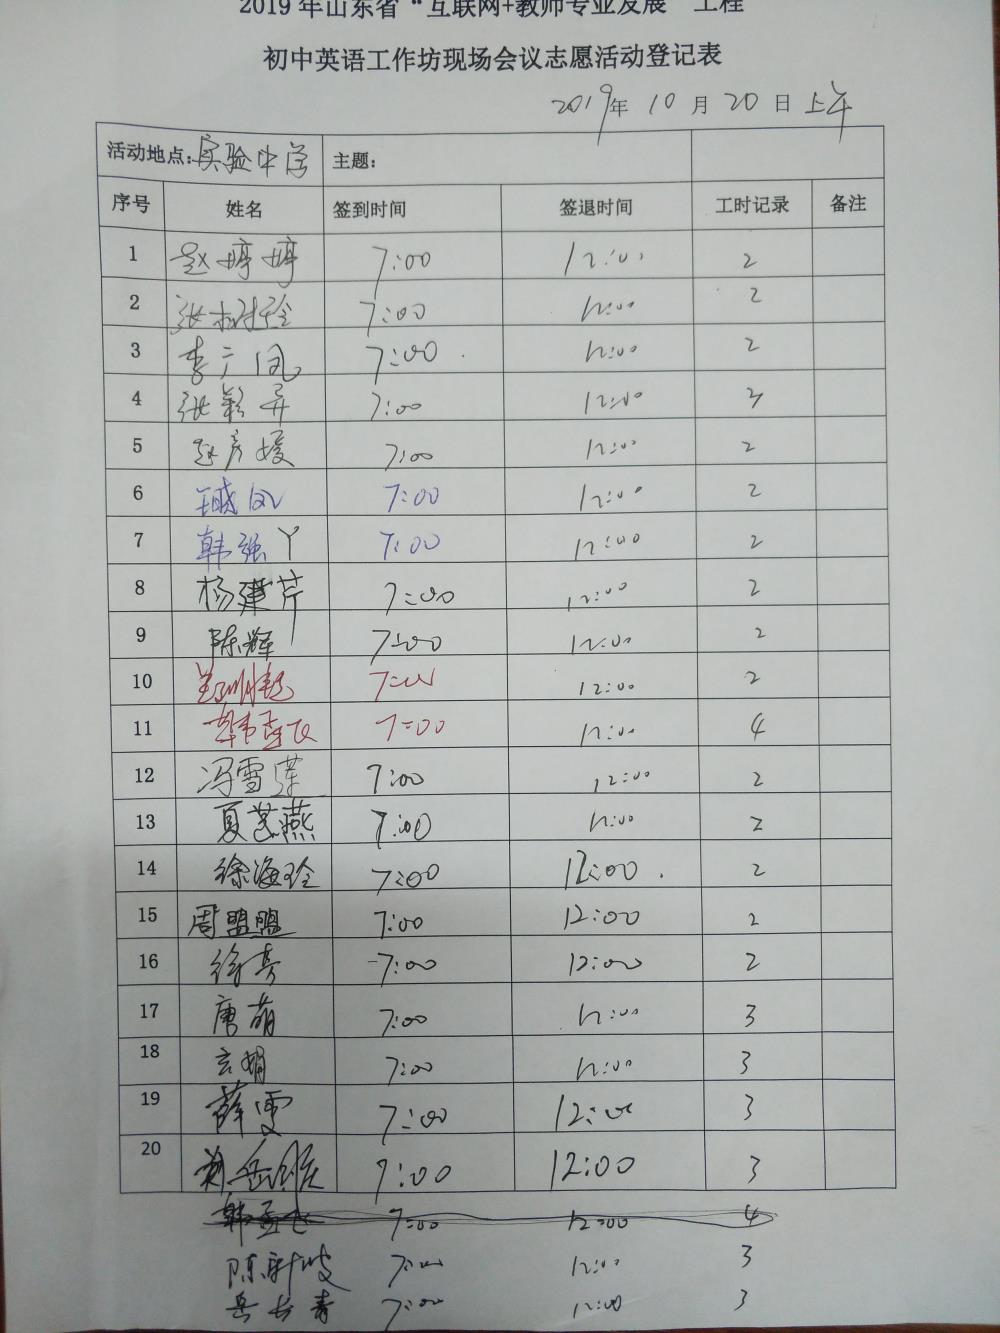 2019年山东省“互联网+教师专业发展”工程
初中英语工作坊现场会议志愿活动登记表
2019年 10 月 20 日 上午
活动地点:实验中学 主题:
序号 姓名 签到时间 签退时间 工时记录 备注
1 赵婷婷 7:00 12:00 2
2 张树玲 7:00 12:00 2
3 李广凤 7:00 12:00 2
4 张颖异 7:00 12:00 3
5 赵彦媛 7:00 12:00 2
6 凤 7:00 12:00 2
7 韩强 7:00 12:00 2
8 杨建芹 7:00 12:00 2
9 陈辉 7:00 12:00 2
10 7:00 12:00 2
11 韩孟飞 7:00 12:00 4
12 冯雪莲 7:00 12:00 2
13 夏艺燕 7:00 12:00 2
14 徐海玲 7:00 12:00 2
15 周盟盟 7:00 12:00 2
16 徐 7:00 12:00 2
17 唐萌 7:00 12:00 3
18 玄娟 7:00 12:00 3
19 薛雯 7:00 12:00 3
20 7:00 12:00 3
韩孟飞 7:00 12:00 4
陈新波 7:00 12:00 3
岳长青 7:00 12:00 3